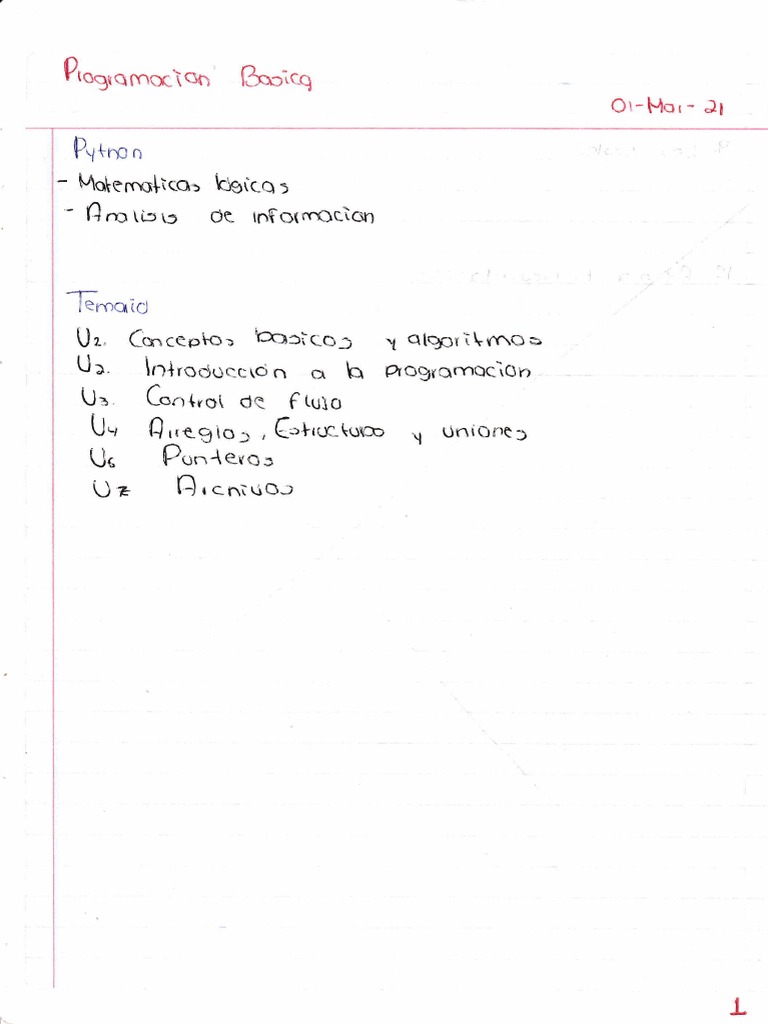 Programacion Basica
01-Mar-21
Python
- Matematicas lógicas
- Analisis de informacion
Temario
U1. Conceptos basicos y algoritmos
U2. Introducción a la programacion
U3. Control de flujo
U4 Arreglos, Estructuras y uniones
U6 Punteros
U7 Archivos
1